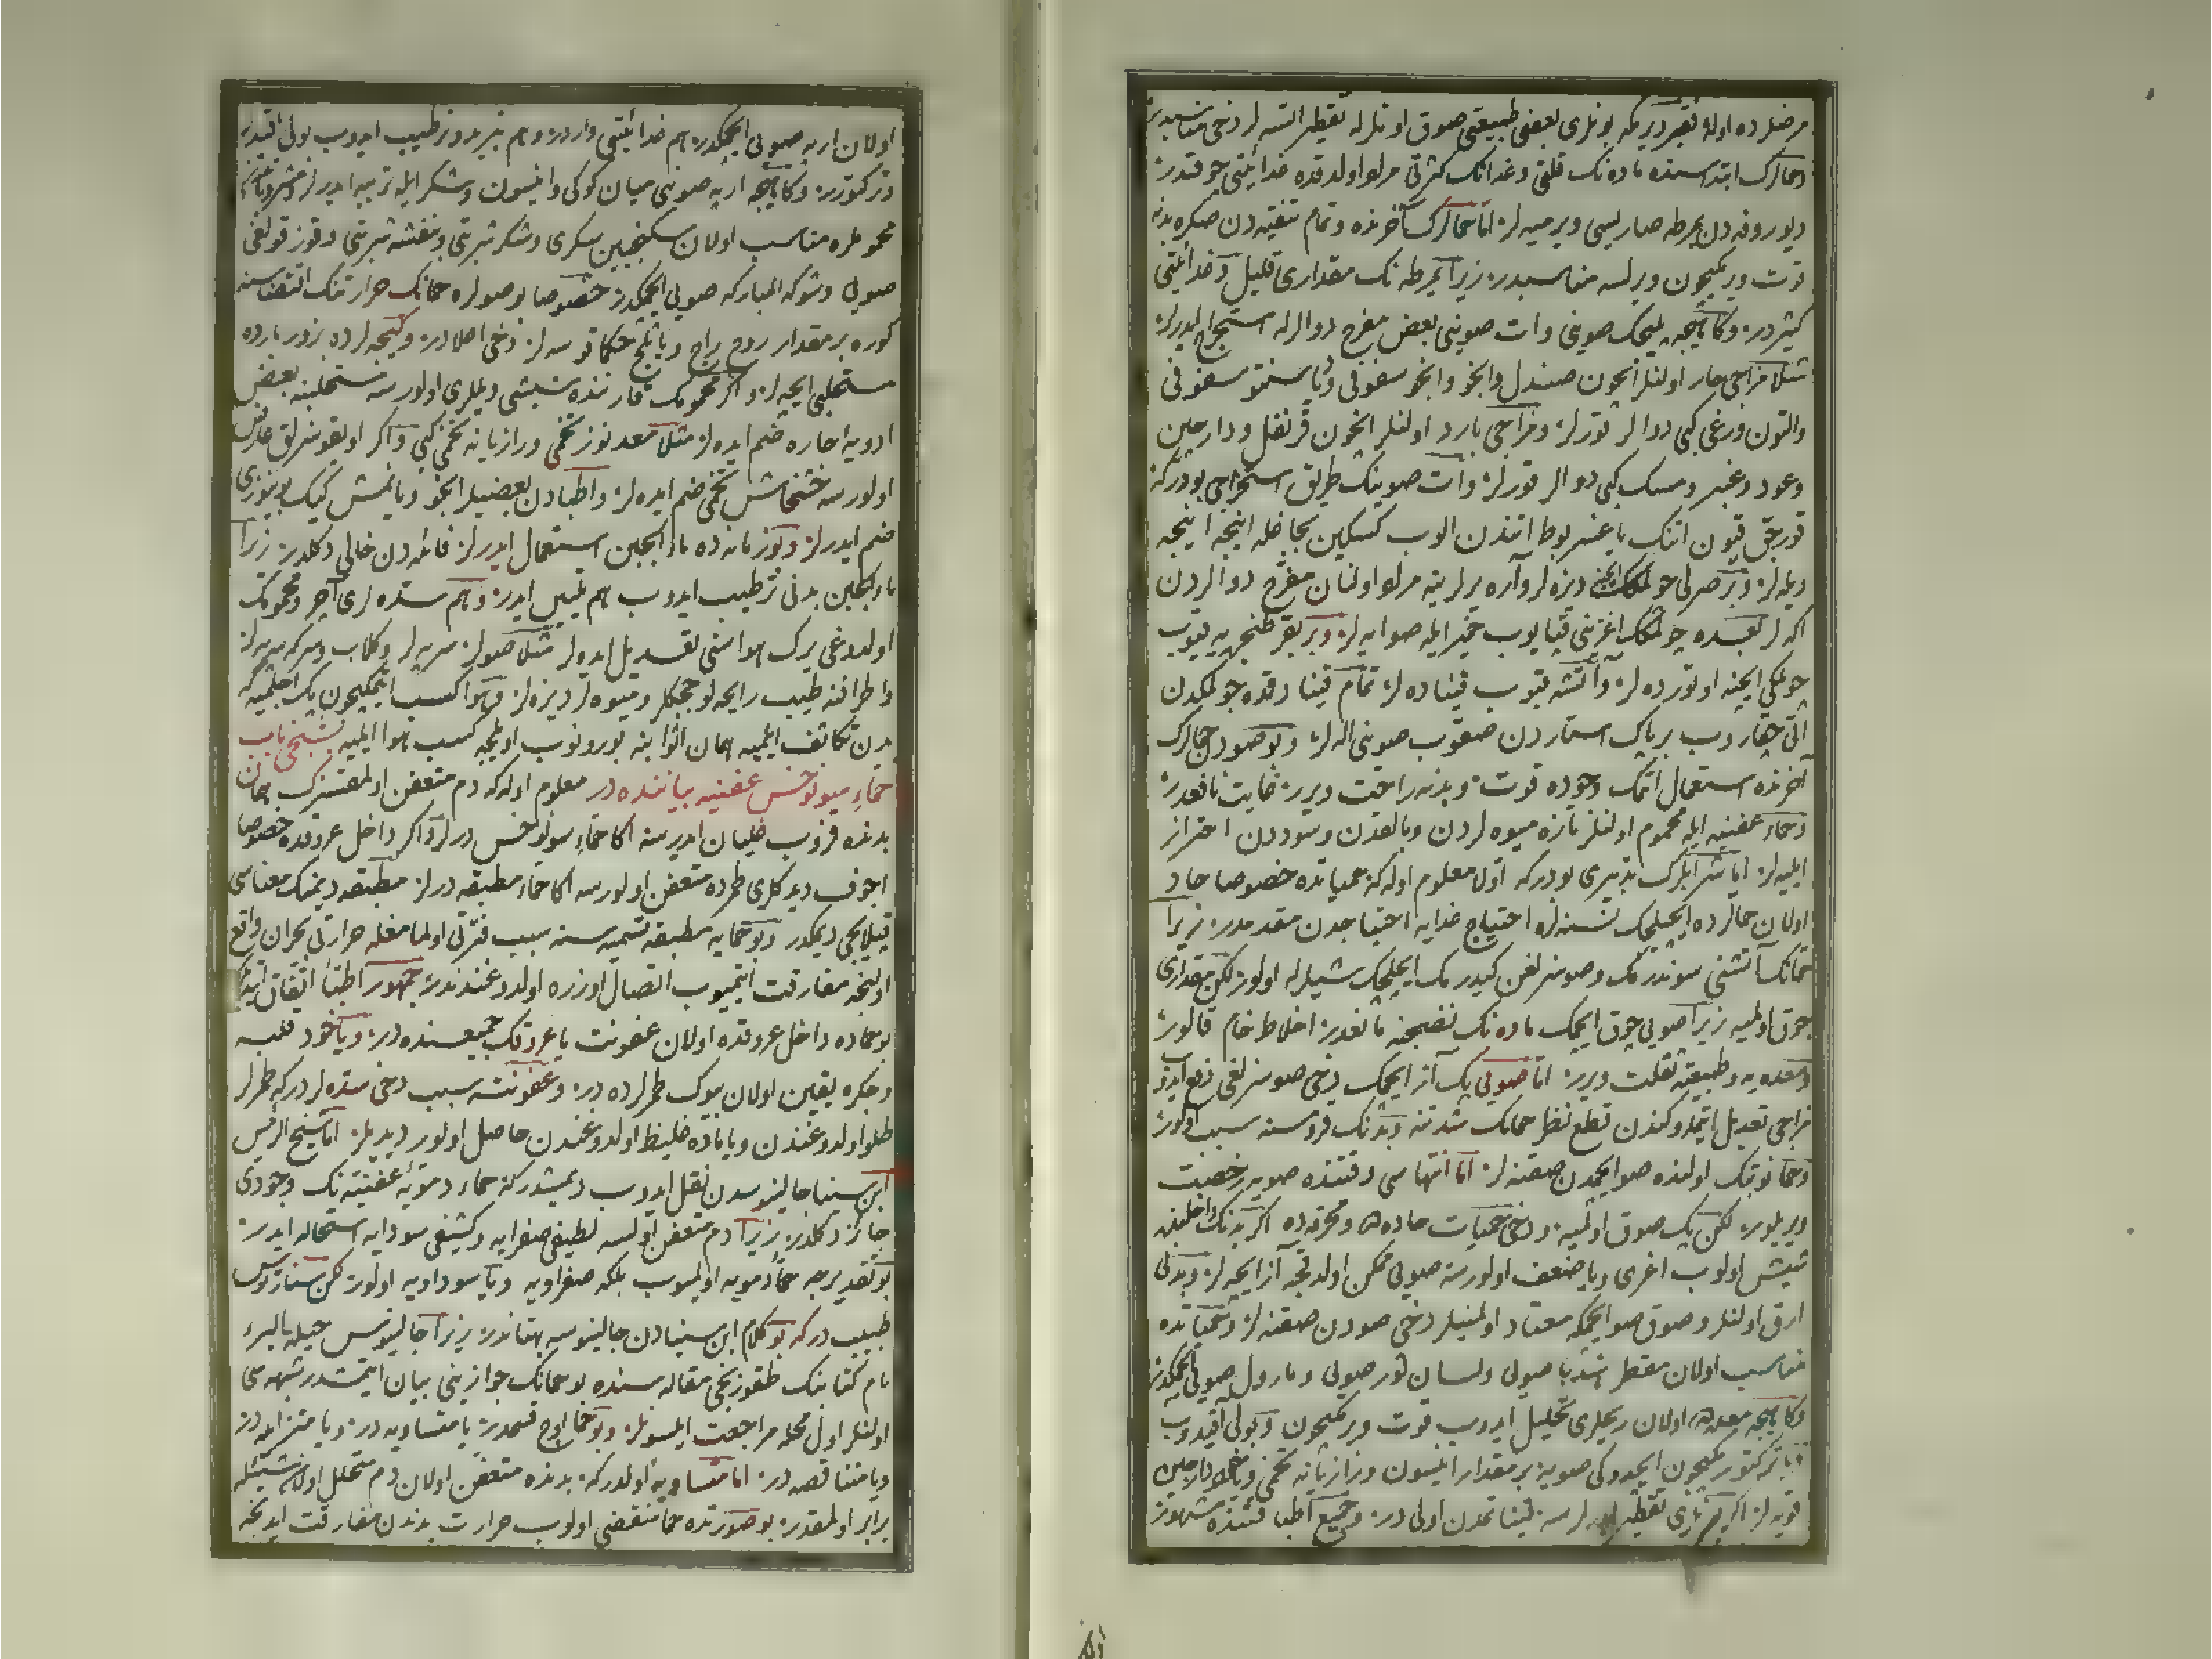 مرضلرده اوله تقدیر دیر که بونلری بعضی طبیعتی صوق اوتلرله تقطیر اتسه لر دخی مناسبدر
دحمالرک ابتداسنده ماده نک قلتی و غدانک کثرتی مرلو اولدقده غدائیتی چوقدر
دیو روفه دن یمرطه صاریسی ویرمیه لر اما حمالرک آخرنده و تمام تنقیه دن صکره بدنه
قوت ویرمکیچون ویرلسه مناسبدر زیرا یمرطه نک مقداری قلیل و غدائیتی
کثیردر و کاهیجه پلیچک صوینی و ات صوینی بعض مفرح دوالرله استخراج ایدرلر
مثلا مزاجی حار اولنلر ایچون صندل و انجو و انجو سفوفی و یاسمنتو سفوفی
والتون ورغی کبی دوالر قورلر و مزاجی بارد اولنلر ایچون قرنفل و دارچین
و عود و عنبر و مسک کبی دوالر قورلر و ات صوینک طریق استخراجی بودر که
قورجق قیون اتنک یاغسز بوط اتندن الوب کسکین بچاغله اینجه اینجه
دیله لر و بر صرلی چولمکک ایچنه دیزه لر و آره یرلرینه مرلو اولنان مفرح دوالردن
اکه لر بعده چولمکک اغزینی قپایوب خمیر ایله صوایه لر و بر بقر طنجریه قیوب
چولمکی ایچنه اوتورده لر و آتشه قیوب قیناده لر تمام قینادقده چولمکدن
اتی چقاروب بر پاک استاردن صقوب صوینی اله لر و بو صو دحمالرک
آخرنده استعمال اتمک وجوده قوت و بدنه راحت ویرر غایت نافعدر
و حماء عفنیه ایله محموم اولنلر تازه میوه لردن و بالقدن و سوددن احتراز
ایلیه لر اما شرابلرک تدبیری بودر که اولا معلوم اوله که حمیاتده خصوصا حاد
اولان حمالرده ایچیلجک نسنه لره احتیاج غدایه احتیاجدن مقدمدر زیرا
حمانک آتشنی سوندرمک و صوسزلغن کیدرمک ایچیلجک شیلرله اولور لکن مقداری
چوق اولمیه زیرا صویی چوق ایچمک ماده نک نضجنه مانعدر اخلاط خام قالور
و معده یه و طبیعته ثقلت ویرر اما صویی پک آز ایچمک دخی صوسزلغی دفع ایدوب
مزاجی تعدیل اتمدوکندن قطع نظر حمانک شدتنه و بدنک قروسنه سبب اولور
و حما نوبتک اولنده صو ایچمدن صقنه لر اما انتهاسی وقتنده صویه رخصت
ویریلور لکن پک صوق اولمیه و دخی حمیات حاده ده و محرقه ده اکر بدنک داخلنده
شیش اولوب اغری و یا ضعف اولورسه صویی ممکن اولدقچه آز ایچه لر و بدنی
ارق اولنلر و صوق صو ایچمکه معتاد اولمینلر دخی صودن صقنه لر و حمیاتده
مناسب اولان مقطر هندبا صویی و لسان ثور صویی و مارول صویی ایچمکدر
و کاهیجه معده ده اولان ریحلری تحلیل ایدوب قوت ویرمکیچون و بولی آقیدوب
و یا ترکتورمکیچون ایچدوکی صویه بر مقدار انیسون و رازیانه تخمی و یا دارچین
قویه لر اکر تقطیر ایدرلرسه قیناتمدن اولی در و جمیع اطبا قتنده مشهور
اولان ارپه صویی ایچمکدر هم غدائیتی واردر و هم تبرید و ترطیب ایدوب بولی آقیدر
و ترکتورر و کاهیجه ارپه صوینی میان کوکی و انیسون و شکر ایله تربیه ایدرلر
محموملره مناسب اولان سکنجبین سکری و شکر شربتی و بنفشه شربتی و قوزقولغی
صویی و شوکه المبارکه صویی ایچمکدر خصوصا بو صولره حمانک حرارتنک اقتضاسنه
کوره بر مقدار روح زاج و یا ملح حکما قوسه لر دخی اعلادر و کیجه لرده بزور بارده
مستحلبی ایچه لر و اکر محمومک قارننده شیشی و یللری اولورسه مستحلبنه بعض
ادویه احاره ضم ایده لر مثلا معدنوز تخمی و رازیانه تخمی کبی و اکر اویقوسزلق عارض
اولورسه خشخاش تخمی ضم ایده لر و اطبادن بعضیلر انجو و یانمش کیک بوینوزی
ضم ایدرلر و بو زمانده ماء الجبن استعمال ایدرلر فائده دن خالی دکلدر زیرا
ماء الجبن بدنی ترطیب ایدوب هم تلیین ایدر و هم سده لری آچر و محمومک
اولدوغی یرک هواسنی تعدیل ایده لر مثلا صولر سرپه لر و کلاب و سرکه سرپه لر
و اطرافنه طیب رایحه لو چچکلر و میوه لر دیزه لر و هوا کسب ایتمکیچون پک اچلمیه که
بدن تکاثف ایلمیه همان اثوابنه بورونوب اویلجه کسب هوا ایلیه بشنجی باب
حماء سونوخس عفنیه بیاننده در معلوم اوله که دم متعفن اولمقسزک همان
بدنده قزوب غلیان ایدرسه اکا حماء سونوخس درلر و اکر داخل عروقده خصوصا
اجوف دیدکلری طمرده متعفن اولورسه اکا حماء مطبقه درلر مطبقه دیمنک معناسی
قپلایجی دیمکدر و بو حمایه مطبقه تسمیه سنه سبب فترتی اولمامغله حرارتی بحران واقع
اولنجه مفارقت ایتمیوب اتصال اوزره اولدوغندندر جمهور اطبا اتفاق
بو حماده داخل عروقده اولان عفونت یا عروقک جمیعسنده در و یاخود قلبه
و جکره یقین اولان بیوک طمرلرده در و عفونته سبب دخی سده لردر که طمرلر
طلو اولدوغندن و یا ماده غلیظ اولدوغندن حاصل اولور دیدیلر اما شیخ الرئیس
ابن سینا جالینوسدن نقل ایدوب دیمشدر که حماء دمویه عفنیه نک وجودی
جائز دکلدر زیرا دم متعفن اولسه لطیفی صفرایه و کثیفی سودایه استحاله ایدر
بو تقدیرجه حما دمویه اولمیوب بلکه صفراویه و یا سوداویه اولور لکن سنارتوس
طبیب در که بو کلام ابن سینادن جالینوسه بهتاندر زیرا جالینوس حیلة البرء
نام کتابنک طقوزنجی مقاله سنده بو حمانک جوازینی بیان ایتمشدر شبهه سی
اولنلر اول محله مراجعت ایلسونلر و بو حما اوچ قسمدر یا متساویه در و یا متزایده در
و یا متناقصه در اما متساویه اولدر که بدنده متعفن اولان دم متحلل اولان شیئله
برابر اولمقدر بو صورتده حما منقضی اولوب حرارت بدندن مفارقت ایدنجه